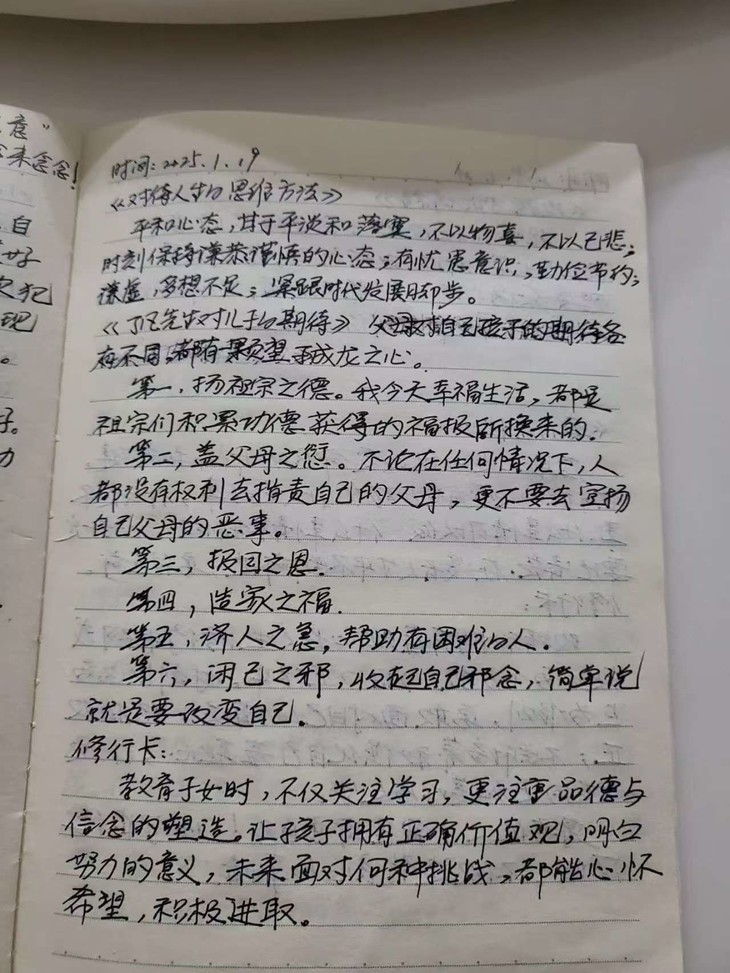 意”
念来念念!
自
好
犯
现
。
好。
力
时间:2025.1.19
《对待人生的思维方法》
平和心态,甘于平淡和落寞,不以物喜,不以己悲;
时刻保持谦恭谨慎的心态;有忧患意识,勤俭节约;
谦虚,多想不足;紧跟时代发展脚步。
《了凡先生对儿子的期待》父母对自己孩子的期待各
有不同,都有颗望子成龙之心。
第一,扬祖宗之德。我今天幸福生活,都是
祖宗们积累功德获得的福报所换来的。
第二,盖父母之愆。不论在任何情况下,人
都没有权利去指责自己的父母,更不要去宣扬
自己父母的恶事。
第三,报国之恩.
第四,造家之福.
第五,济人之急,帮助有困难的人.
第六,闲己之邪,收起自己邪念,简单说
就是要改变自己.
修行卡:
教育子女时,不仅关注学习,更注重品德与
信念的塑造。让孩子拥有正确价值观,明白
努力的意义,未来面对何种挑战,都能心怀
希望,积极进取。